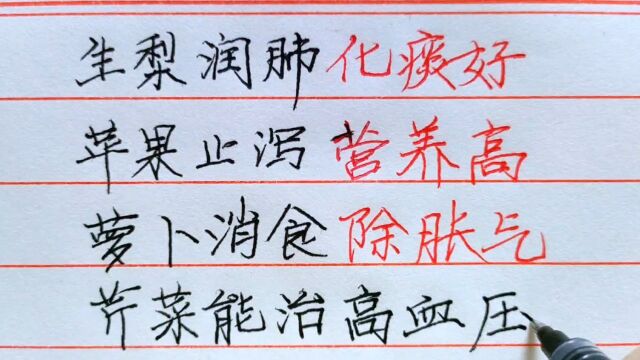 生梨润肺化痰好
苹果止泻营养高
萝卜消食除胀气
芹菜能治高血压